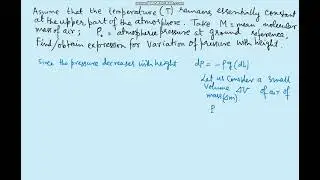 Assume that the temperature (T) remains essentially constant
at the upper part of the atmosphere. Take M = mean molecular
mass of air ; P₀ = atmospheric pressure at ground reference.
Find/obtain expression for variation of pressure with height.
Since the pressure decreases with height dP = -ρg(dh)
Let us Consider a small
volume ΔV of air of
mass(Δm).
ρ